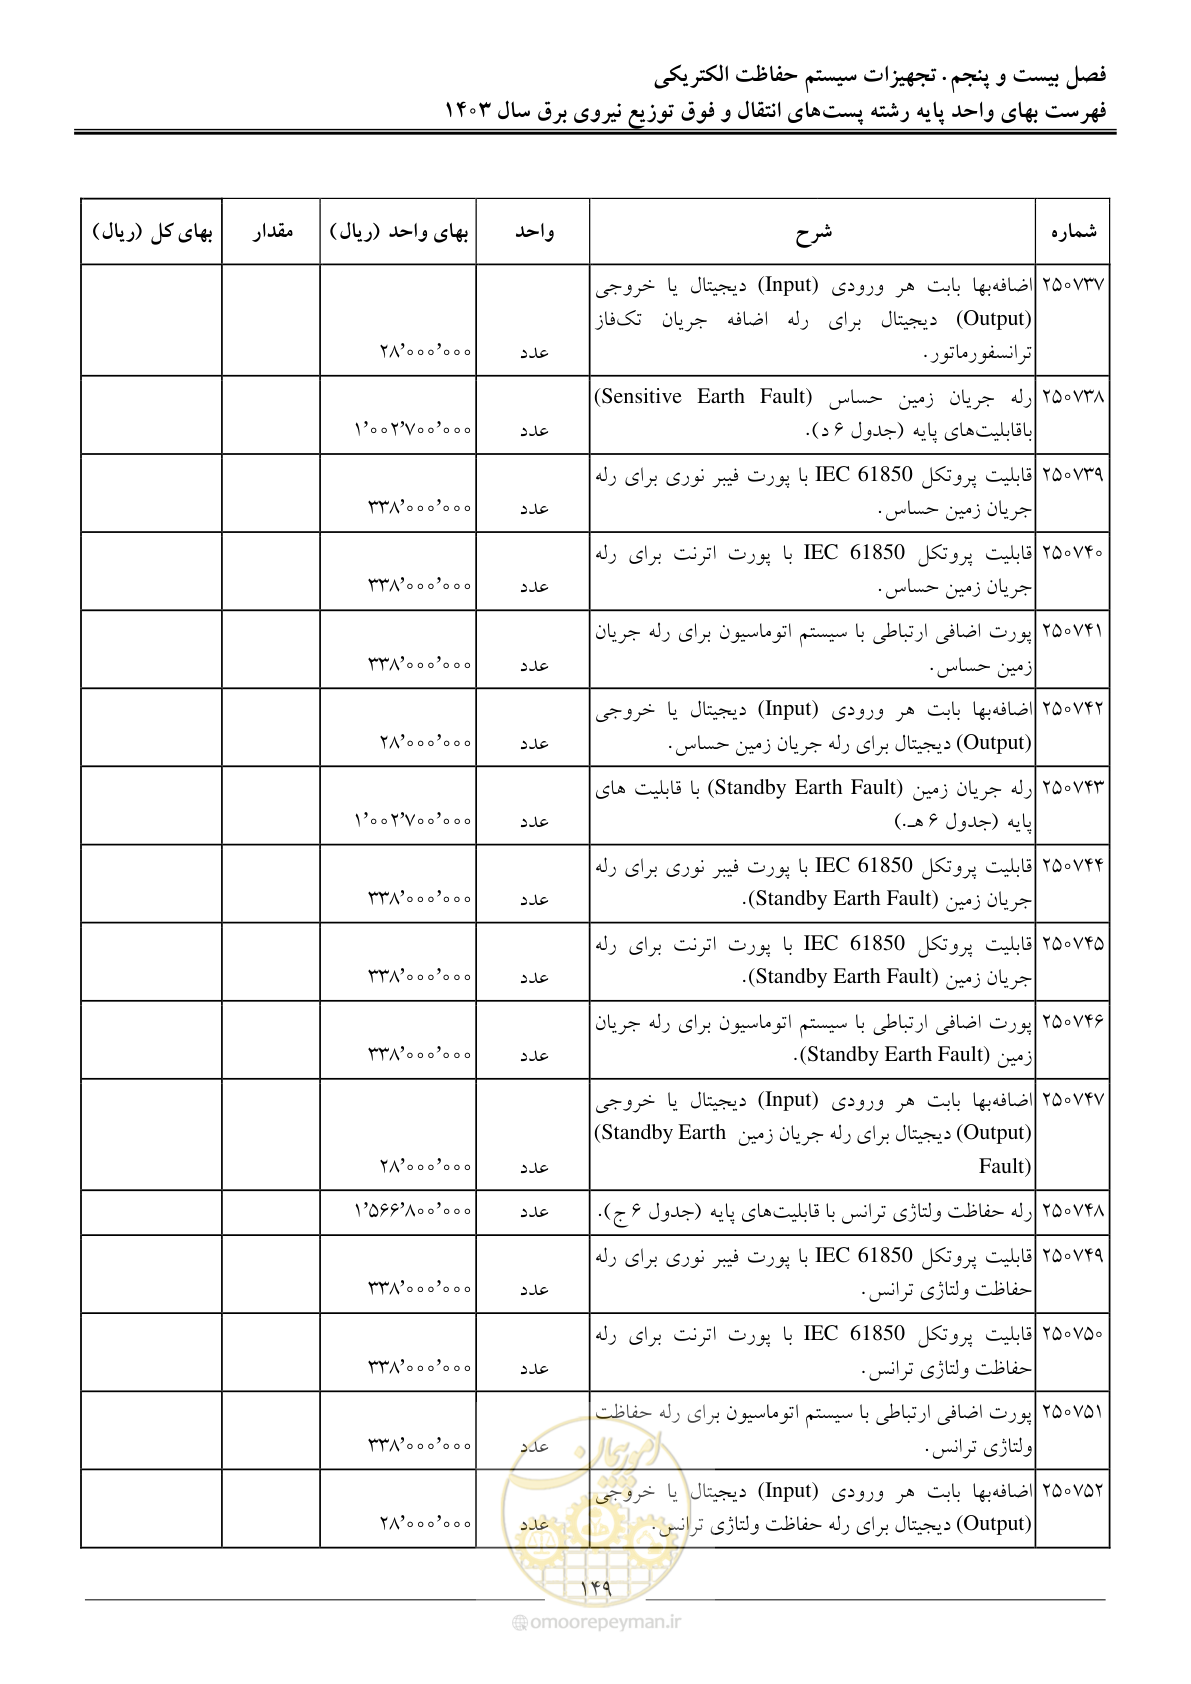 فصل بیست و پنجم. تجهیزات سیستم حفاظت الکتریکی
فهرست بهای واحد پایه رشته پست‌های انتقال و فوق توزیع نیروی برق سال ۱۴۰۳
شماره	شرح	واحد	بهای واحد (ریال)	مقدار	بهای کل (ریال)
۲۵۰۷۳۷ اضافه‌بها بابت هر ورودی (Input) دیجیتال یا خروجی
(Output) دیجیتال برای رله اضافه جریان تک‌فاز
ترانسفورماتور. عدد ۲۸٬۰۰۰٬۰۰۰
۲۵۰۷۳۸ رله جریان زمین حساس (Sensitive Earth Fault)
باقابلیت‌های پایه (جدول ۶ د). عدد ۱٬۰۰۲٬۷۰۰٬۰۰۰
۲۵۰۷۳۹ قابلیت پروتکل IEC 61850 با پورت فیبر نوری برای رله
جریان زمین حساس. عدد ۳۳۸٬۰۰۰٬۰۰۰
۲۵۰۷۴۰ قابلیت پروتکل IEC 61850 با پورت اترنت برای رله
جریان زمین حساس. عدد ۳۳۸٬۰۰۰٬۰۰۰
۲۵۰۷۴۱ پورت اضافی ارتباطی با سیستم اتوماسیون برای رله جریان
زمین حساس. عدد ۳۳۸٬۰۰۰٬۰۰۰
۲۵۰۷۴۲ اضافه‌بها بابت هر ورودی (Input) دیجیتال یا خروجی
(Output) دیجیتال برای رله جریان زمین حساس. عدد ۲۸٬۰۰۰٬۰۰۰
۲۵۰۷۴۳ رله جریان زمین (Standby Earth Fault) با قابلیت های
پایه (جدول ۶ هـ.) عدد ۱٬۰۰۲٬۷۰۰٬۰۰۰
۲۵۰۷۴۴ قابلیت پروتکل IEC 61850 با پورت فیبر نوری برای رله
جریان زمین (Standby Earth Fault). عدد ۳۳۸٬۰۰۰٬۰۰۰
۲۵۰۷۴۵ قابلیت پروتکل IEC 61850 با پورت اترنت برای رله
جریان زمین (Standby Earth Fault). عدد ۳۳۸٬۰۰۰٬۰۰۰
۲۵۰۷۴۶ پورت اضافی ارتباطی با سیستم اتوماسیون برای رله جریان
زمین (Standby Earth Fault). عدد ۳۳۸٬۰۰۰٬۰۰۰
۲۵۰۷۴۷ اضافه‌بها بابت هر ورودی (Input) دیجیتال یا خروجی
(Output) دیجیتال برای رله جریان زمین (Standby Earth
Fault) عدد ۲۸٬۰۰۰٬۰۰۰
۲۵۰۷۴۸ رله حفاظت ولتاژی ترانس با قابلیت‌های پایه (جدول ۶ ج). عدد ۱٬۵۶۶٬۸۰۰٬۰۰۰
۲۵۰۷۴۹ قابلیت پروتکل IEC 61850 با پورت فیبر نوری برای رله
حفاظت ولتاژی ترانس. عدد ۳۳۸٬۰۰۰٬۰۰۰
۲۵۰۷۵۰ قابلیت پروتکل IEC 61850 با پورت اترنت برای رله
حفاظت ولتاژی ترانس. عدد ۳۳۸٬۰۰۰٬۰۰۰
۲۵۰۷۵۱ پورت اضافی ارتباطی با سیستم اتوماسیون برای رله حفاظت
ولتاژی ترانس. عدد ۳۳۸٬۰۰۰٬۰۰۰
۲۵۰۷۵۲ اضافه‌بها بابت هر ورودی (Input) دیجیتال یا خروجی
(Output) دیجیتال برای رله حفاظت ولتاژی ترانس. عدد ۲۸٬۰۰۰٬۰۰۰
امور پیمان
۱۴۹
omoorepeyman.ir